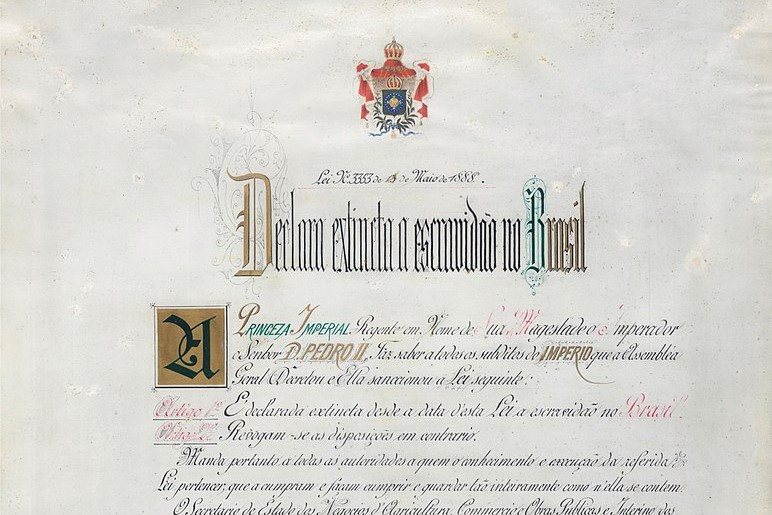 Lei Nº 3353 de 13 de Maio de 1888.
Declara extincta a escravidão no Brasil
A PRINCEZA IMPERIAL Regente em Nome de Sua Magestade o Imperador
o Senhor D. PEDRO II, Faz saber a todos os subditos do IMPERIO que a Assembléa
Geral Decretou e Ella sanccionou a Lei seguinte:
Artigo 1º É declarada extincta desde a data d'esta Lei a escravidão no Brazil.
Artigo 2º Revogam-se as disposições em contrario.
Manda portanto a todas as autoridades a quem o conhecimento e execução da referida
Lei pertencer, que a cumpram e façam cumprir e guardar tão inteiramente como n'ella se contem.
O Secretario de Estado dos Negocios d'Agricultura, Commercio e Obras Publicas e Interino dos